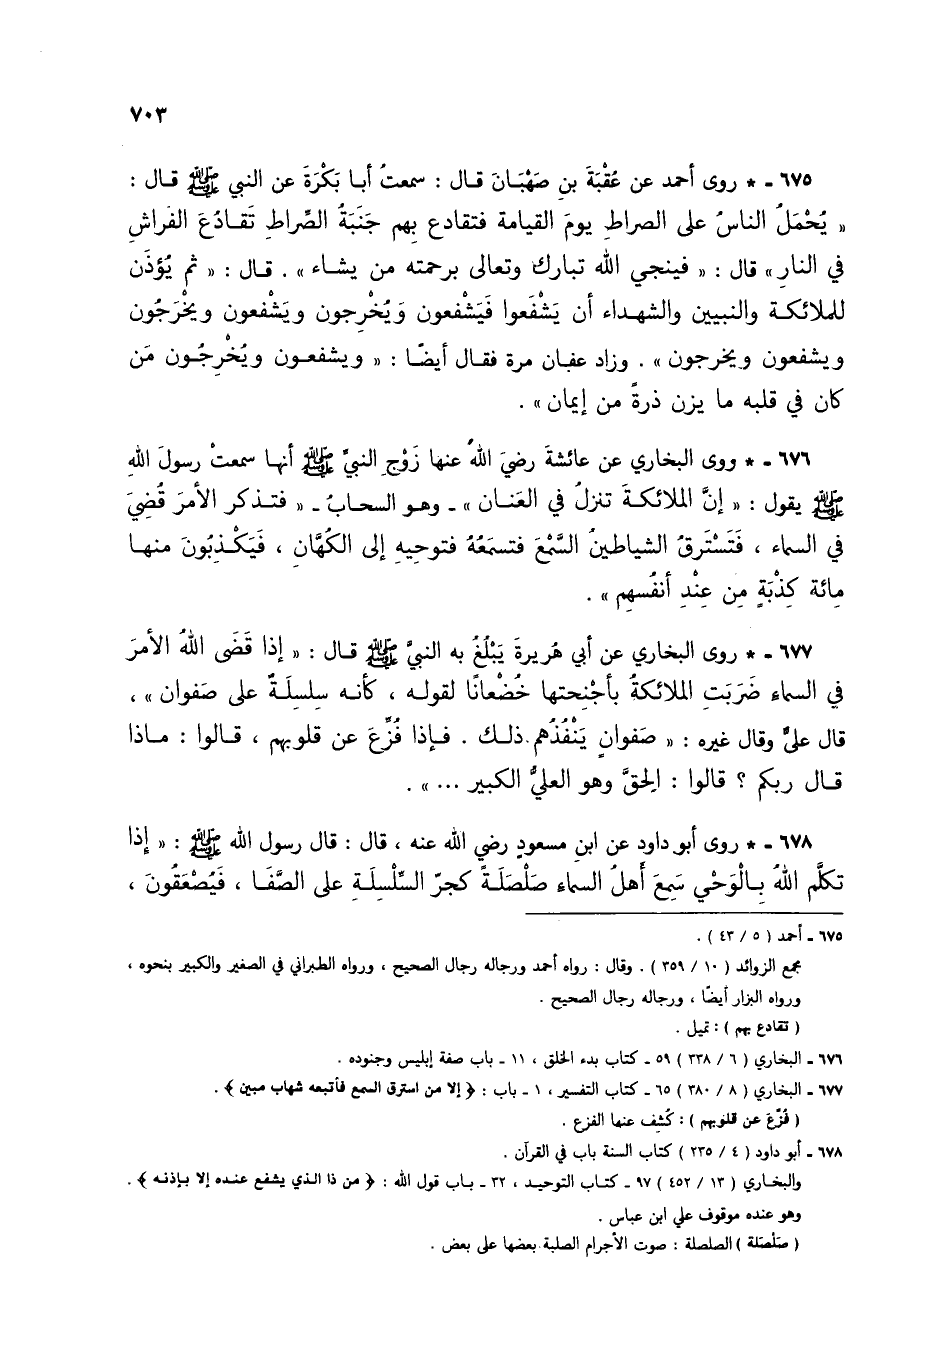 ٧٠٣
٦٧٥ - * روى أحمد عن عُقْبَةَ بنِ صَهْبَـانَ قـال : سمعتُ أبـا بَكْرَةَ عن النبي ﷺ قـال :
« يُحْمَلُ الناسُ على الصراطِ يومَ القيامة فتقادع بهم جَنَبَةُ الصِّراطِ تَقـادُعَ الفَراشِ
في النارِ » قال : « فينجي الله تبارك وتعالى برحمته من يشاء » . قـال : « ثم يُؤذَن
للملائكـة والنبيين والشهـداء أن يَشْفَعوا فَيَشْفعون وَيُخْرِجون ويَشْفعون ويخْرَجُون
ويشفعون ويخرجون » . وزاد عفـان مرة فقـال أيضًـا : « ويشفعـون ويُخْرِجُـون مَن
كان في قلبه ما يزن ذرةً من إيمان » .
٦٧٦ - * ووى البخاري عن عائشةَ رضيَ اللهُ عنها زَوْجِ النبيِّ ﷺ أنهـا سمعتْ رسولَ اللهِ
ﷺ يقول : « إنَّ الملائكـةَ تنزلُ في العَنـان » - وهـو السحـابُ - « فتـذكر الأمرَ قُضِيَ
في السماء ، فَتَسْتَرِقُ الشياطينُ السَّمْعَ فتسمَعُهُ فتوحيهِ إلى الكُهَّانِ ، فَيَكْذِبُونَ منهـا
مِائة كِذْبَةٍ مِن عِنْدِ أنفُسِهِم » .
٦٧٧ - * روى البخاري عن أبي هُريرةَ يَبْلُغُ به النبيَّ ﷺ قـال : « إذا قَضَى اللهُ الأمرَ
في السماء ضَرَبَتِ الملائكةُ بأجْنِحتها خُضْعانًا لقولـه ، كأنـه سِلسِلَـةٌ على صَفوان » ،
قال عليٌّ وقال غيره : « صَفوانٍ يَنْفُذُهم ذلـك . فـإذا فُزِّعَ عن قلوبهم ، قـالوا : مـاذا
قـال ربكم ؟ قالوا : الحقَّ وهو العليُّ الكبير ... » .
٦٧٨ - * روى أبو داود عن ابن مسعودٍ رضي الله عنه ، قال : قال رسول الله ﷺ : « إذا
تكلَّم اللهُ بـالْوَحْي سَمِعَ أَهلُ السماء صَلْصَلَـةً كجرِّ السِّلْسِلَـةِ على الصَّفَـا ، فَيُصْعَقُونَ ،
٦٧٥ - أحمد ( ٥ / ٤٣ ) .
مجمع الزوائد ( ١٠ / ٣٥٩ ) . وقال : رواه أحمد ورجاله رجال الصحيح ، ورواه الطبراني في الصغير والكبير بنحوه ،
ورواه البزار أيضًا ، ورجاله رجال الصحيح .
( تقادع بهم ) : تميل .
٦٧٦ - البخاري ( ٦ / ٣٣٨ ) ٥٩ - كتاب بدء الخلق ، ١١ - باب صفة إبليس وجنوده .
٦٧٧ - البخاري ( ٨ / ٣٨٠ ) ٦٥ - كتاب التفسير ، ١ - باب : ﴿ إلا من استرق السمع فأتبعه شهاب مبين ﴾ .
( فُزِّعَ عن قلوبهم ) : كُشِف عنها الفزع .
٦٧٨ - أبو داود ( ٤ / ٢٣٥ ) كتاب السنة باب في القرآن .
والبخـاري ( ١٣ / ٤٥٢ ) ٩٧ - كتـاب التوحيـد ، ٣٢ - بـاب قول الله : ﴿ من ذا الذي يشفع عنـده إلا بـإذنـه ﴾ .
وهو عنده موقوف علي ابن عباس .
( صَلْصَلة ) الصلصلة : صوت الأجرام الصلبة بعضها على بعض .